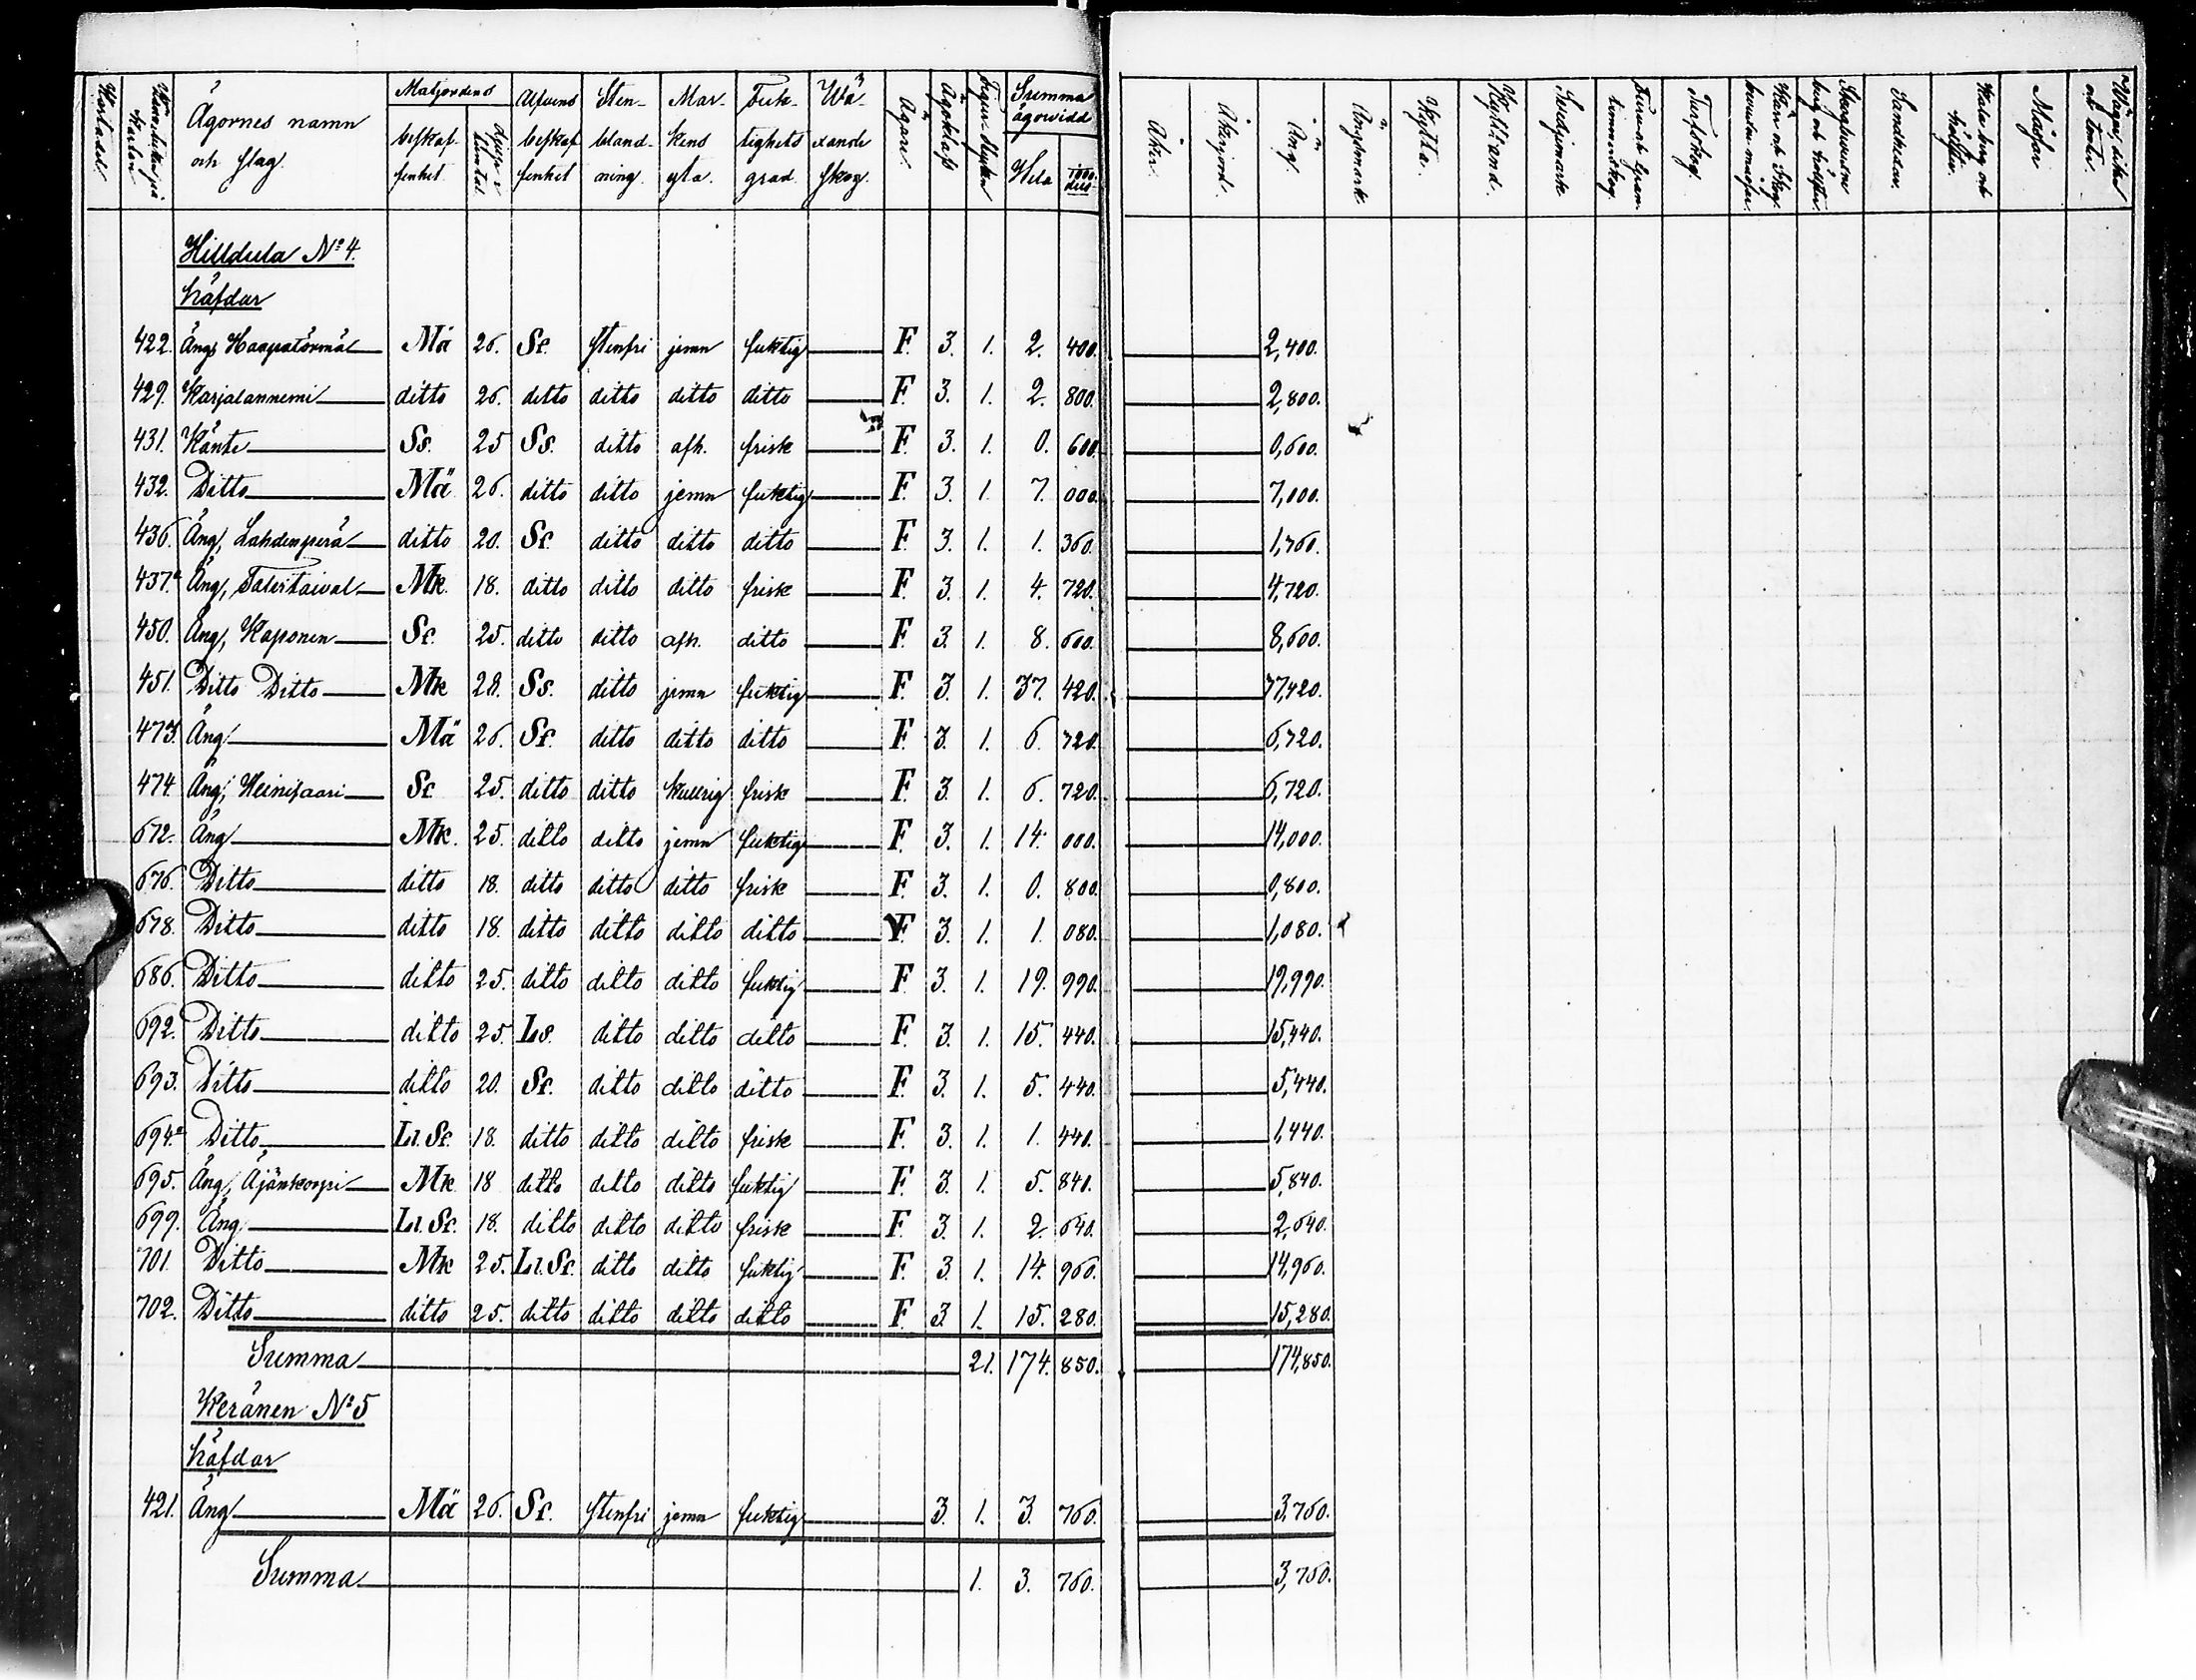 Ägornes namn och slag. Matjordens beskaffenhet djup Alfvens beskaffenhet Stenblandning. Markens yta. Fuktighets grad. Wäxande skog. Ägare. Ägoklass Figur Stycken Summa ägovidd Hela 1000 dels Åker. Åkerjord. Äng. Ängsmark Nytta. Kyttland. Svedjemark Tufskog Sandhedar. Måsar
Hilldula No 4.
häfdar
422. Ängs Haapatörmäl Mä 26. Sc. stenfri jemn fuktig F. 3. 1. 2. 400. 2,400.
429. Karjalanniemi ditto 26. ditto ditto ditto ditto F. 3. 1. 2. 800. 2,800.
431. Känte Ss. 25 Ss. ditto afh. frisk F. 3. 1. 0. 600. 0,600.
432. Ditto Mä 26. ditto ditto jemn fuktig F. 3. 1. 7. 000. 7,000.
436. Äng, Lahdenperä ditto 20. Sc. ditto ditto ditto F. 3. 1. 1. 360. 1,360.
437a Äng, Taivitaival Mk. 18. ditto ditto ditto frisk F. 3. 1. 4. 720. 4,720.
450. Äng, Kaponen Sc. 25. ditto ditto afh. ditto F. 3. 1. 8. 600. 8,600.
451. Ditto Ditto Mk 28. Ss. ditto jemn fuktig F. 3. 1. 37. 420. 37,420.
473 Äng Mä 26. Sc. ditto ditto ditto F. 3. 1. 6. 720. 6,720.
474 Äng, Heinisaari Sc 25. ditto ditto kullrig frisk F. 3. 1. 6. 720. 6,720.
672. Äng Mk. 25. ditto ditto jemn fuktig F. 3. 1. 14. 000. 14,000.
676. Ditto ditto 18. ditto ditto ditto frisk F. 3. 1. 0. 800. 0,800.
678. Ditto ditto 18. ditto ditto ditto ditto F. 3. 1. 1. 080. 1,080.
686. Ditto ditto 25. ditto ditto ditto fuktig F. 3. 1. 19. 990. 19,990.
692. Ditto ditto 25. Ls. ditto ditto ditto F. 3. 1. 15. 440. 15,440.
693. Ditto ditto 20. Sc. ditto ditto ditto F. 3. 1. 5. 440. 5,440.
694a Ditto L1.Sc. 18. ditto ditto ditto frisk F. 3. 1. 1. 440. 1,440.
695. Äng, Äjänkorpi Mk 18 ditto ditto ditto fuktig F. 3. 1. 5. 840. 5,840.
699. Äng L1.Sc. 18. ditto ditto ditto frisk F. 3. 1. 2. 640. 2,640.
701. Ditto Mk 25. L1.Sc. ditto ditto fuktig F. 3. 1. 14. 960. 14,960.
702. Ditto ditto 25. ditto ditto ditto ditto F. 3. 1. 15. 280. 15,280.
Summa 21. 174. 850. 174,850.
Keränen No 5
häfdar
421. Äng Mä 26. Sc. stenfri jemn fuktig 3. 1. 3. 760. 3,760.
Summa 1. 3. 760. 3,760.